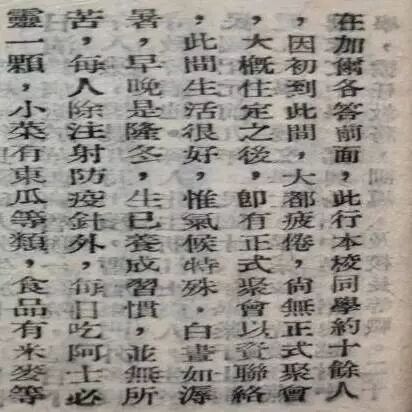 在加爾各答前面，此行本校同學約十餘人
，因初到此間，大都疲倦，尙無正式聚會
，大概住定之後，卽有正式聚會以資聯絡
，此間生活很好，惟氣候特殊，白晝如溽
暑，早晚是隆冬，生已養成習慣，並無所
苦，每人除注射防疫針外，每日吃阿士必
靈一顆，小菜有東瓜等類，食品有米麥等